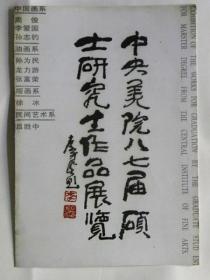 中国画系
李爱国
孙志钧
油画系
孙为民
龙力游
张富荣
版画系
徐冰
民间艺术系
吕胜中
中央美院八七届硕
士研究生作品展览
EXHIBITION OF THE WORKS FOR GRADUATION BY THE GRADUATE STUD ENTS
FOR MARSTER DEGREE FROM THE CENTRAL INSTITUTE OF FINE ARTS